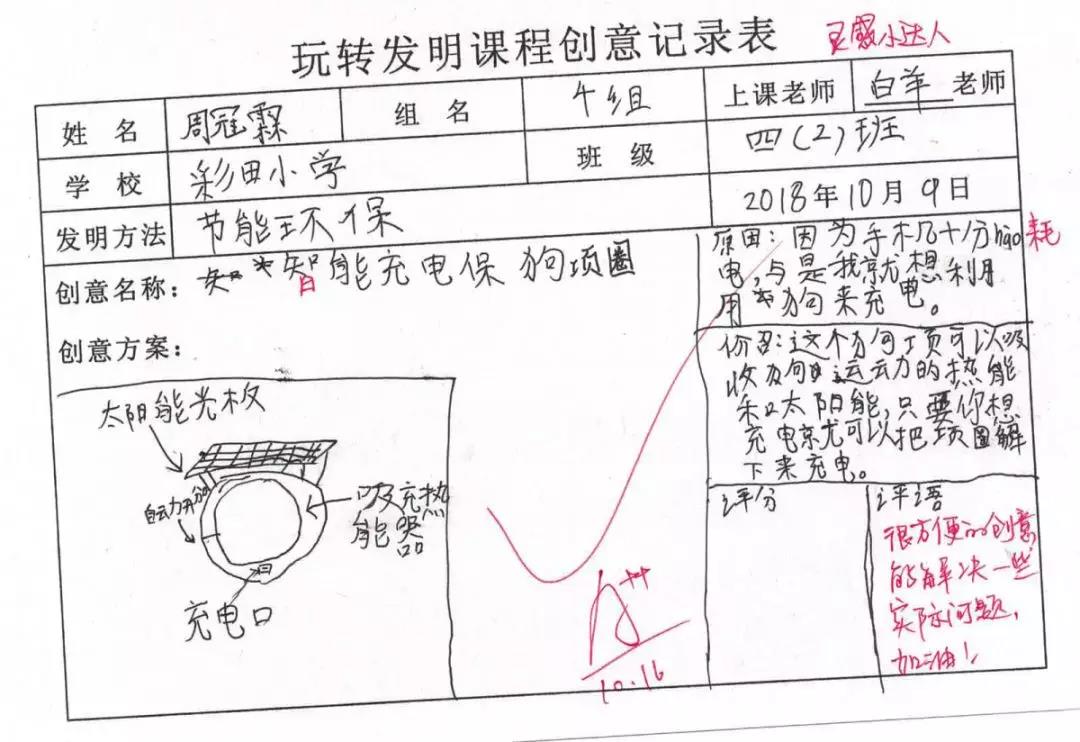 玩转发明课程创意记录表 灵感小达人
姓名 周冠霖 组名 牛组 上课老师 白羊老师
学校 彩田小学 班级 四(2)班
发明方法 节能环保 2018年10月9日
创意名称: 智能充电保狗项圈
创意方案:
太阳能光板
吸充热
能器
充电口
原因: 因为手机十分hào 耗
电,与是我就想利用
用狗来充电。
介召:这个狗项可以吸
收狗运动的热能
和太阳能,只要你想
充电就可以把项圈解
下来充电。
评分
评语
很方便的创意
能解决一些
实际问题,
加油!
A++
10.16